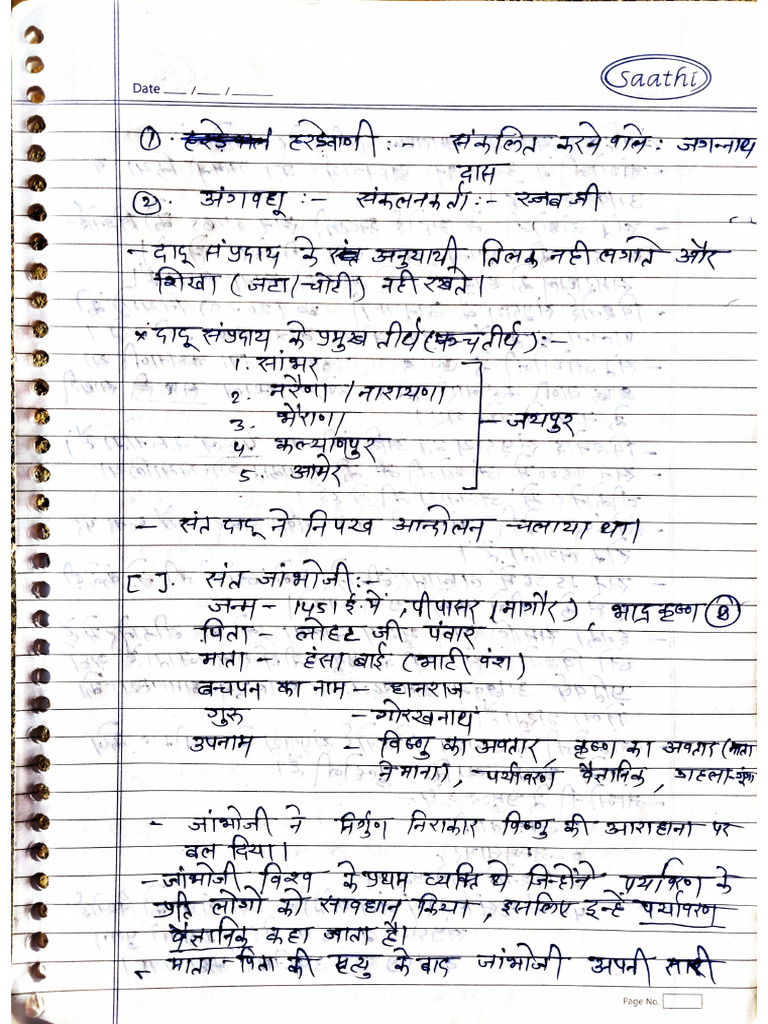 Saathi
Date __/__/____
①. हरडेवाणी :- संकलित करने वाले : जगन्नाथ
दास
②. अंगवधू :- संकलनकर्ता :- रज्जब जी
- दादू संप्रदाय के अनुयायी तिलक नही लगाते और
शिखा (जटा/चोटी) नही रखते।
* दादू संप्रदाय के प्रमुख तीर्थ (पंचतीर्थ) :-
1. सांभर
2. नरैणा / नारायणा
3. भैराणा
4. कल्याणपुर
5. आमेर
- जयपुर
- संत दादू ने निपख आन्दोलन चलाया था।
[ ]. संत जांभोजी :-
जन्म - 1451 ई. में, पीपासर (नागौर) भाद्र कृष्ण ⑧
पिता - लोहट जी पंवार
माता - हंसा बाई (भाटी वंश)
बचपन का नाम - धनराज
गुरु - गोरखनाथ
उपनाम - विष्णु का अवतार, कृष्ण का अवतार (माता
ने माना), पर्यावरण वैज्ञानिक, गहला-गूंगा
- जांभोजी ने निर्गुण निराकार विष्णु की आराधना पर
बल दिया।
- जांभोजी विश्व के प्रथम व्यक्ति थे जिन्होंने पर्यावरण के
प्रति लोगो को सावधान किया, इसलिए इन्हें पर्यावरण
वैज्ञानिक कहा जाता है।
- माता-पिता की मृत्यु के बाद जांभोजी अपनी सारी
Page No.